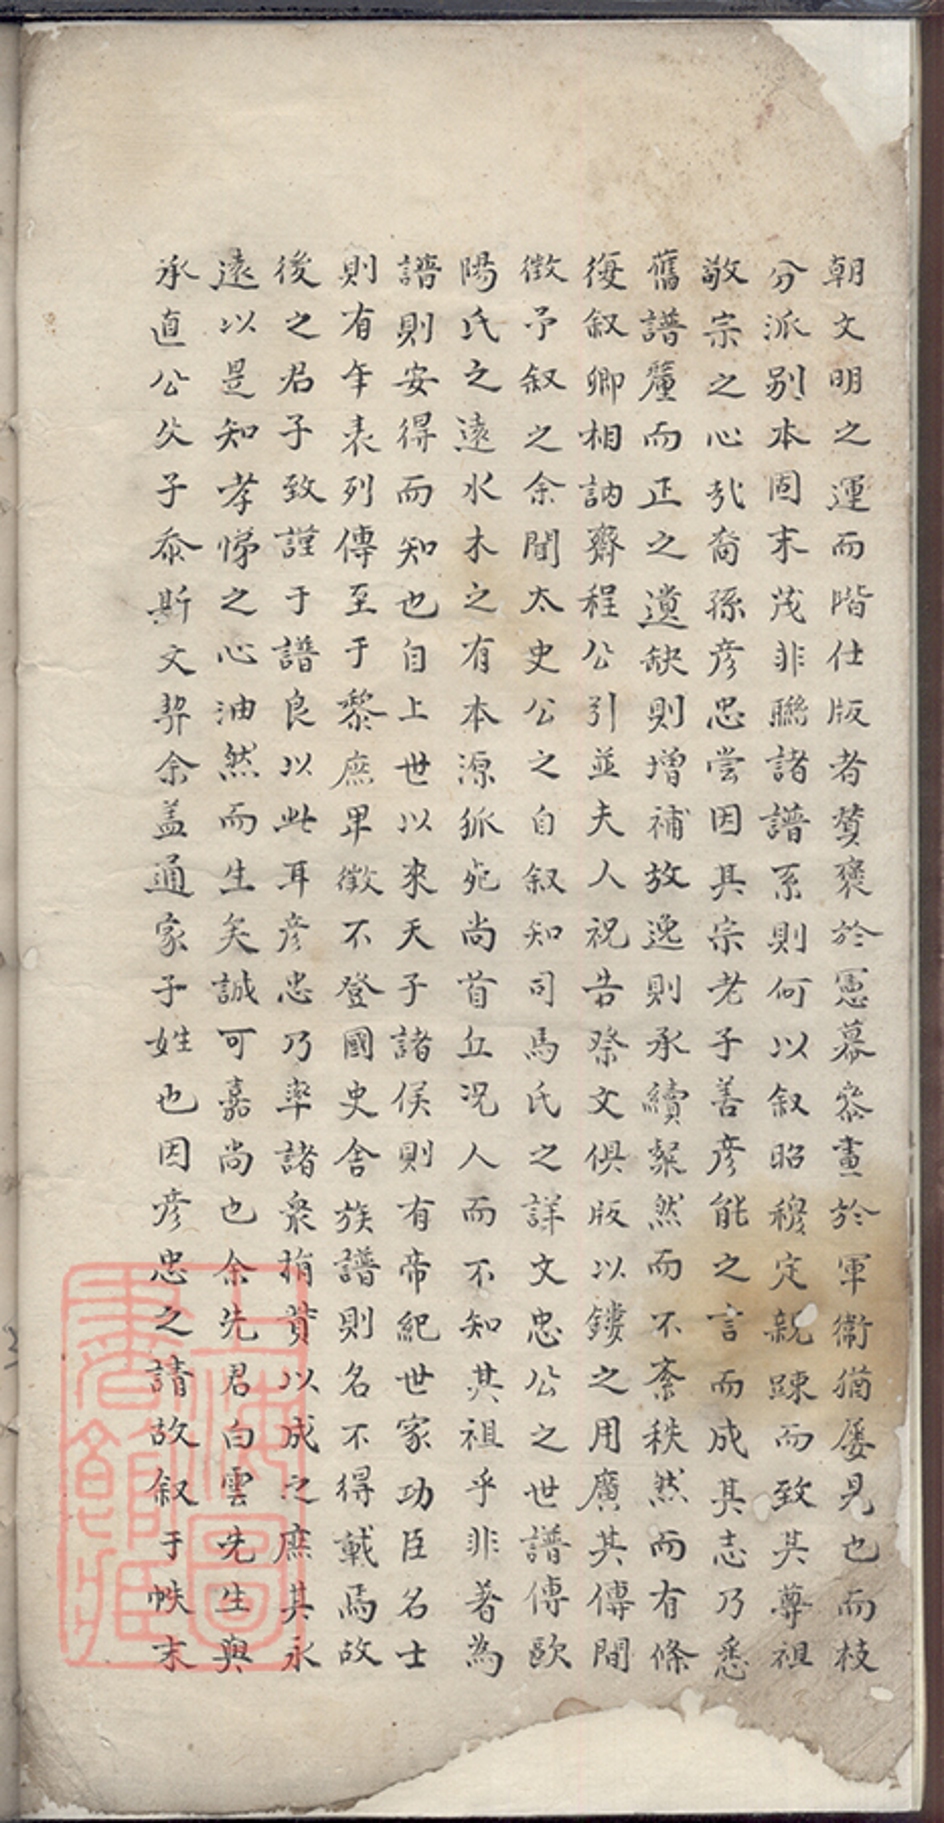 朝文明之運而階仕版者贊襃於憲幕叅畫於軍衛猶屡見也而枝
分派别本固末茂非聮諸譜系則何以叙昭穆定親踈而致其尊祖
敬宗之心㢤裔孫彦忠尝因其宗老子善彦能之言而成其志乃悉
舊譜釐而正之遺缺則增補放逸則承續粲然而不紊秩然而有條
復叙卿相訥齋程公引並夫人祝告祭文俱版以鏤之用廣其傳間
徴予叙之余聞太史公之自叙知司馬氏之詳文忠公之世譜傳歐
陽氏之遠水木之有本源狐死尚首丘况人而不知其祖乎非著為
譜則安得而知也自上世以來天子諸侯則有帝紀世家功臣名士
則有年表列傳至于黎庶畢徴不登國史舎族譜則名不得載焉故
後之君子致謹于譜良以此耳彦忠乃率諸衆捐貲以成之庶其永
遠以是知孝悌之心油然而生矣誠可嘉尚也余先君白雲先生與
承直公父子忝斯文契余盖通家子姓也因彦忠之請故叙于帙末
上海圖
書館藏